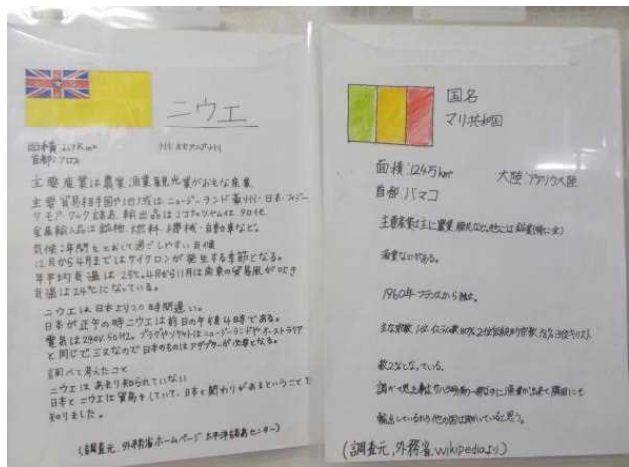 ニウエ
面積:259Km²
首都:アロフィ
主要産業は農業、漁業、観光業がおもな産業
主要貿易相手国や地域はニュージーランド、豪州・日本・フィジー
サモア・クック諸島、輸出品はココナッツ タロイモ
輸入品は 燃料・機械・自動車など。
気候:年間をとおして過ごしやすい気候
12月から4月まではサイクロンが発生する季節となる。
年平均気温は25℃。4月から11月は南東の貿易風が吹き
気温は24℃になっている。
ニウエは日本より20時間遅い。
日本が正午の時ニウエは前日の午後4時である。
電気は240V.50Hz。プラグやソケットはニュージーランドやオーストラリア
と同じで三又なので日本のものはアダプターが必要となる。
調べて考えたこと
ニウエはあまり知られていない
日本とニウエは貿易をしていて、日本と関わりがあるということを
知りました。
(調査元、外務省ホームページ 太平洋諸島センター)
国名
マリ共和国
面積:124万km²
大陸:アフリカ大陸
首都:バマコ
主要産業は主に農業
1960年フランスから独立。
主な宗教 1位イスラム教80% 2位伝統的宗教 3位キリスト
教となっている。
輸出しているから他の国は助かっていると思う。
(調査元、外務省、wikipediaより)